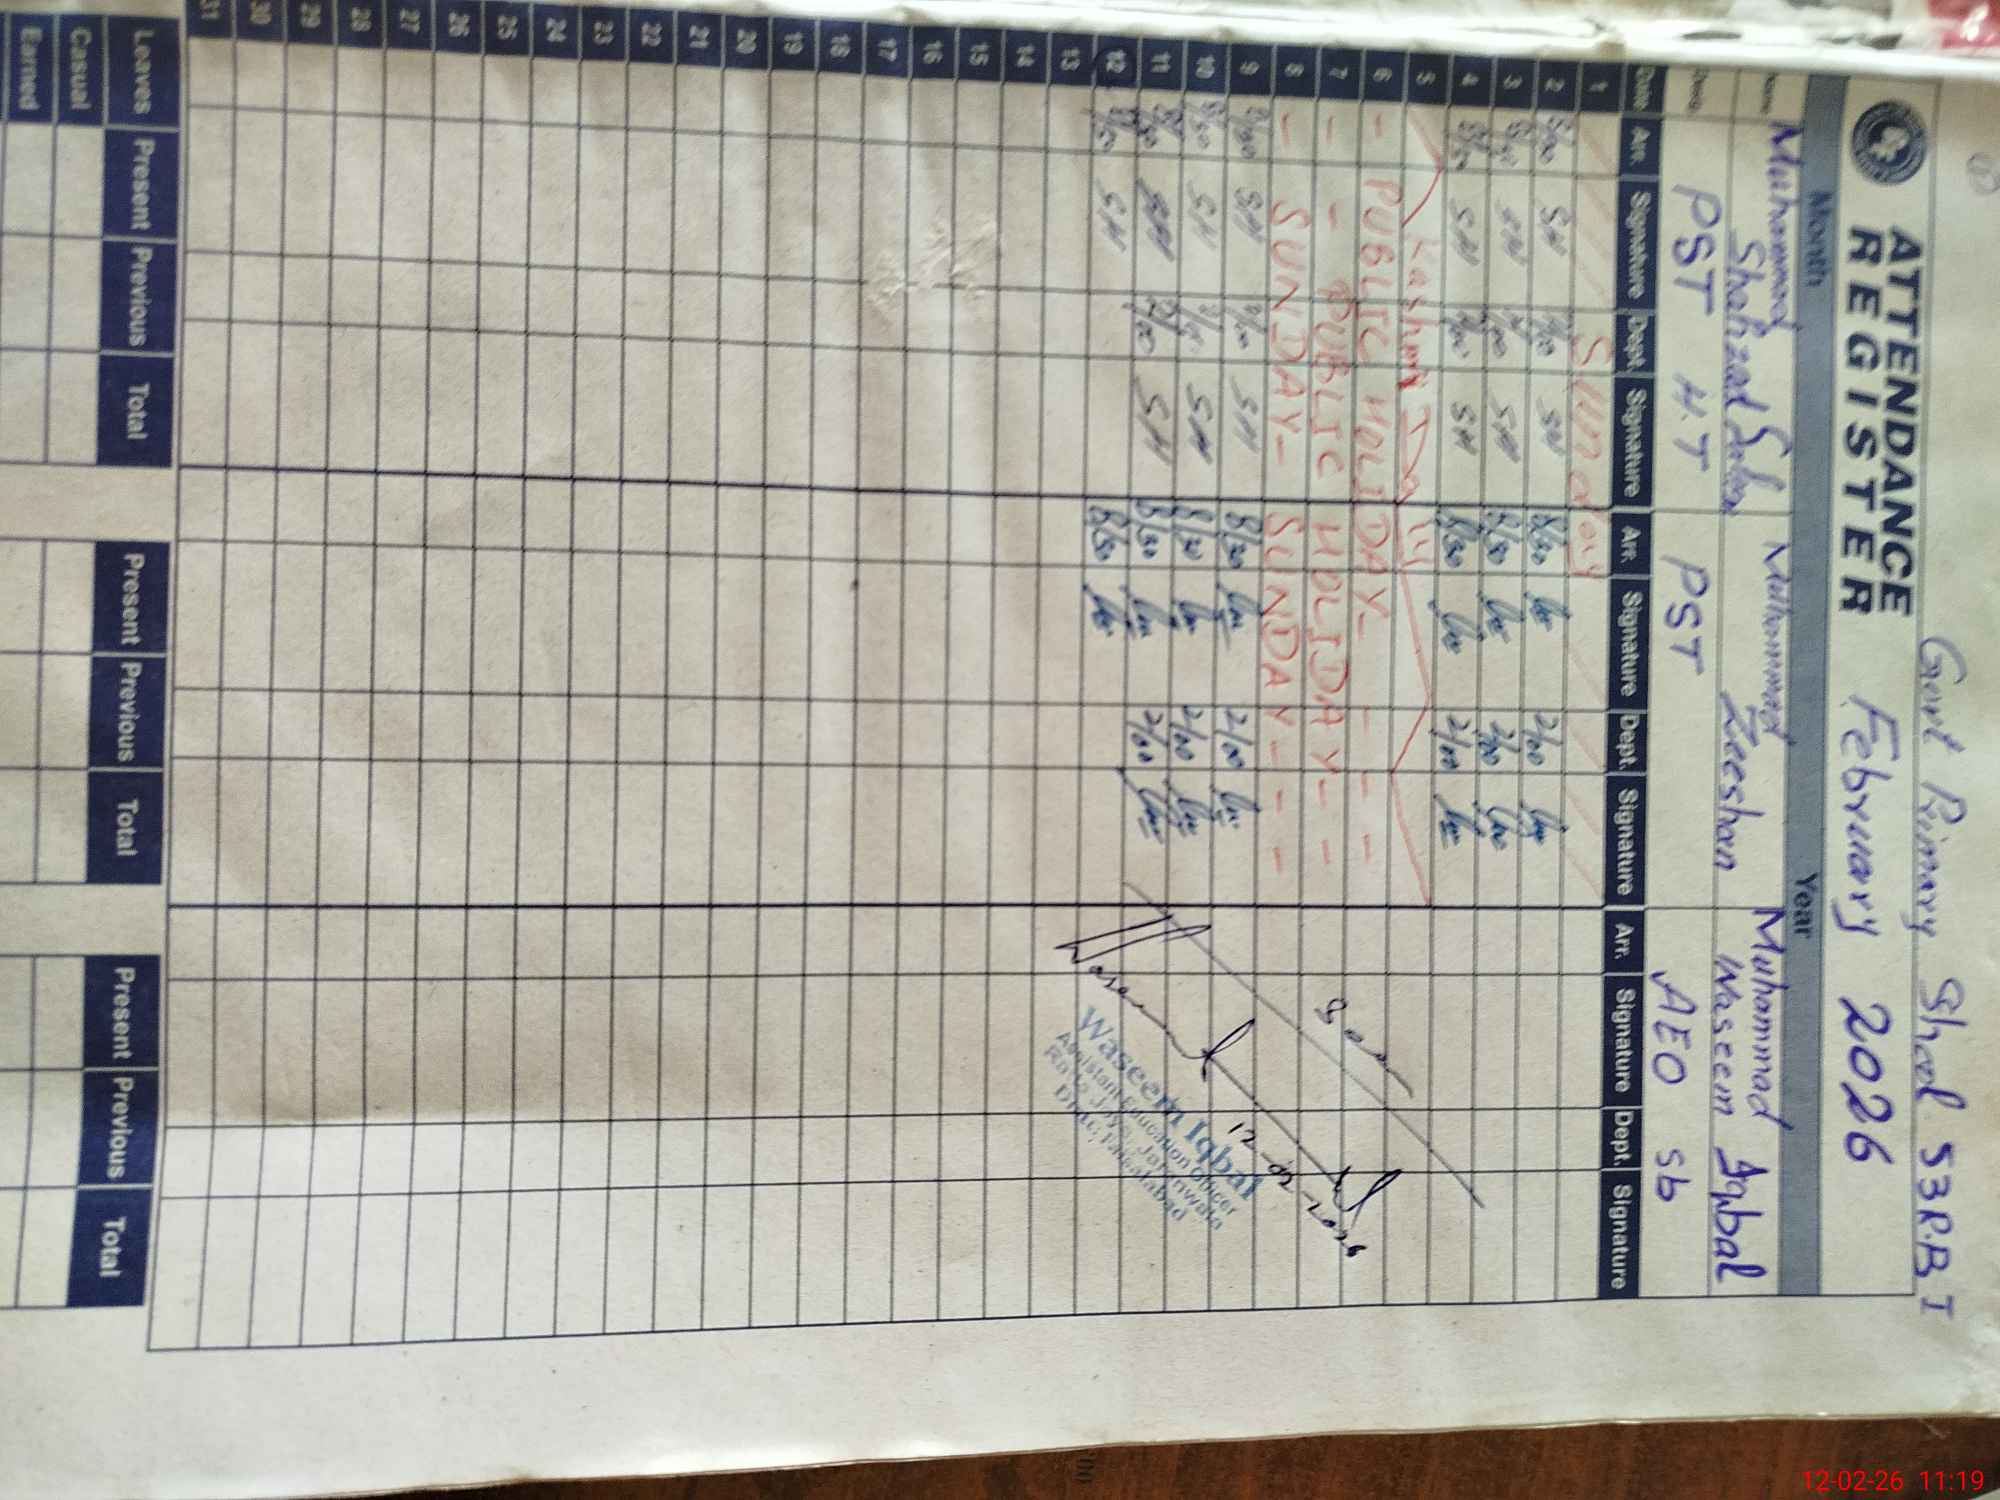 Govt Primary School 53 R.B I
ATTENDANCE
REGISTER
February 2026
Month Year
Name Muhammad Shahzad Muhammad Zeeshan Muhammad Waseem Iqbal
Desig PST H.T PST AEO sb
Date Arr. Signature Dept. Signature Arr. Signature Dept. Signature Arr. Signature Dept. Signature
1 Sunday
2 8/30 SH 2/00 SH 8/30 2/00
3 SH 2/00 SH 8/30 2/00
4 8/30 SH 2/00 SH 8/30 2/00
5 Kashmir Day
6 - PUBLIC HOLIDAY - - - -
7 - - PUBLIC HOLIDAY - - -
8 - SUNDAY - SUNDAY - - - -
9 8/30 SH 2/00 SH 8/30 2/00
10 8/30 SH SH 8/30 2/00
11 8/30 SH 2/00 SH 8/30 2/00
12 8/30 SH 8/30
13
14
15
16
17
18
19
20
21
22
23
24
25
26
27
28
29
30
31
12-02-2026
Waseem Iqbal
Assistant Education Officer
Jaranwala
Faisalabad
Leaves Present Previous Total Present Previous Total Present Previous Total
Casual
Earned
12-02-26 11:19